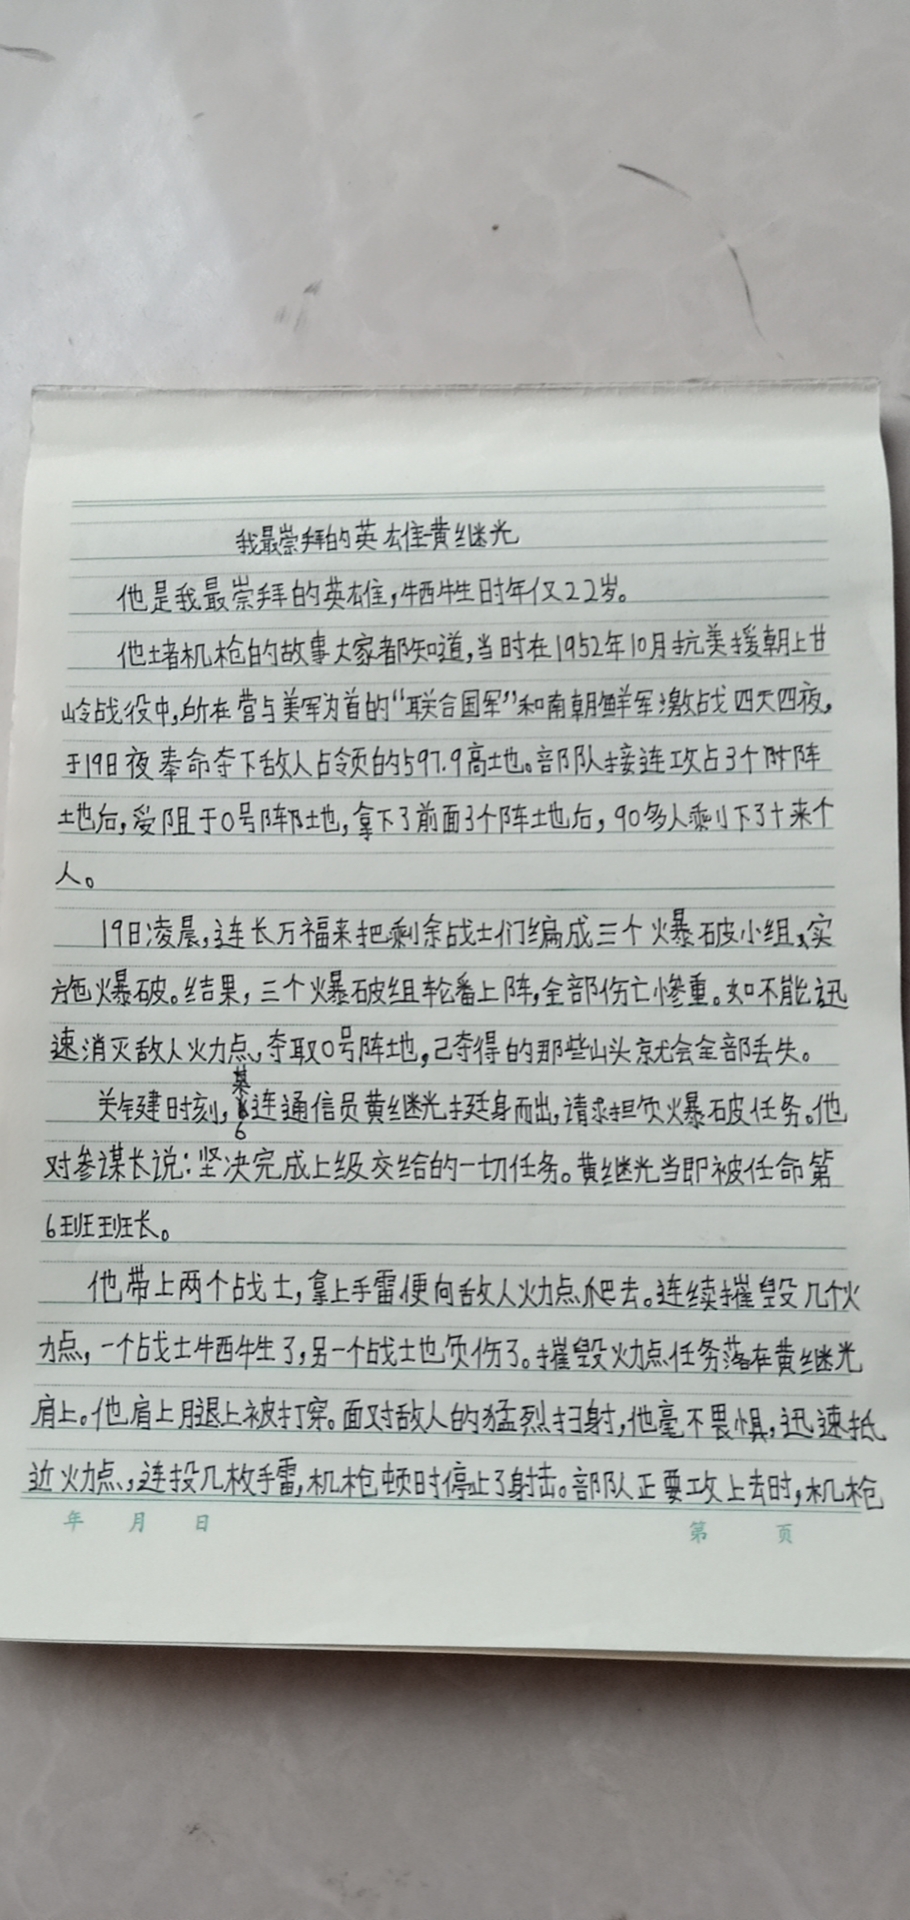 我最崇拜的英雄黄继光
他是我最崇拜的英雄,牺牲时年仅22岁。
他堵机枪的故事大家都知道,当时在1952年10月抗美援朝上甘
岭战役中,所在营与美军为首的“联合国军”和南朝鲜军激战四天四夜,
于19日夜奉命夺下敌人占领的597.9高地。部队接连攻占3个附阵
地后,受阻于0号阵地,拿下了前面3个阵地后,90多人剩下了十来个
人。
19日凌晨,连长万福来把剩余战士们编成三个火暴破小组,实
施火暴破。结果,三个火暴破组轮番上阵,全部伤亡惨重。如不能迅
速消灭敌人火力点,夺取0号阵地,已夺得的那些山头就会全部丢失。
关键时刻,某6连通信员黄继光挺身而出,请求担负火暴破任务。他
对参谋长说:坚决完成上级交给的一切任务。黄继光当即被任命第
6班班长。
他带上两个战士,拿上手雷便向敌人火力点爬去。连续摧毁几个火
力点,一个战士牺牲了,另一个战士也负伤了。摧毁火力点任务落在黄继光
肩上。他肩上腿上被打穿。面对敌人的猛烈扫射,他毫不畏惧,迅速抵
近火力点,连投几枚手雷,机枪顿时停止了射击。部队正要攻上去时,机枪
年 月 日 第 页